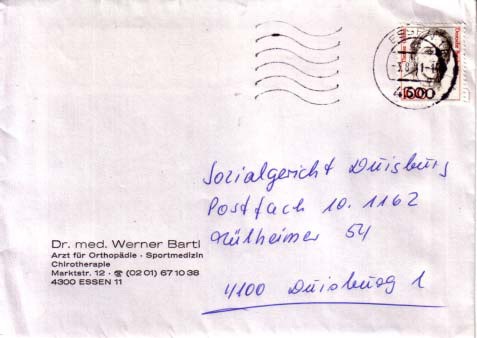 4300
Sozialgericht Duisburg
Postfach 10. 1162
Mülheimer 54
4100 Duisburg 1
Dr. med. Werner Bartl
Arzt für Orthopädie · Sportmedizin
Chirotherapie
Marktstr. 12 · ☎ (02 01) 67 10 38
4300 ESSEN 11